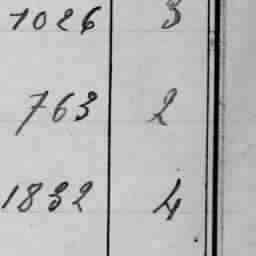 1026 3
763 2
1832 4